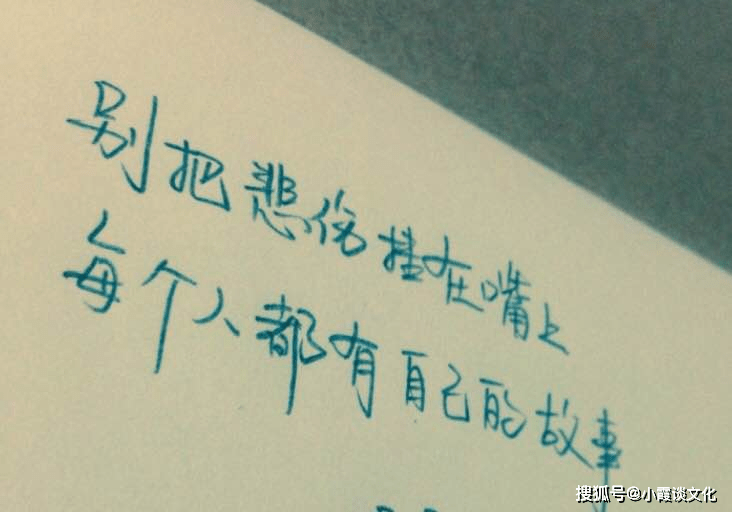 别把悲伤挂在嘴上
每个人都有自己的故事
搜狐号@小霞谈文化